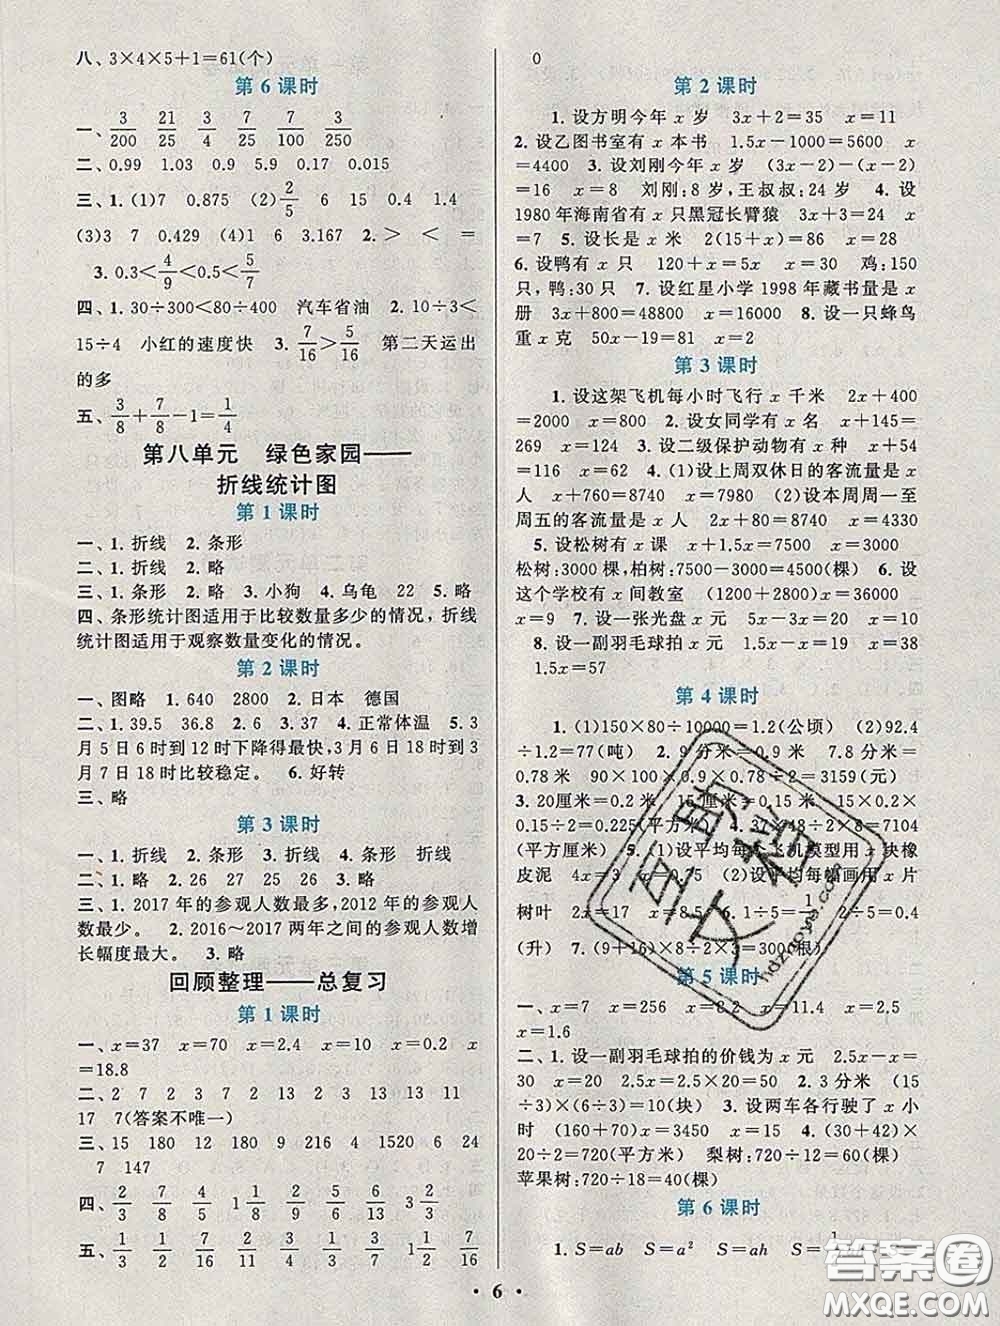 八、3×4×5+1=61(个)
第6课时
一、3/200 21/25 3/4 7/5 7/100 3/250
二、0.99 1.03 0.9 5.9 0.17 0.015
三、1.(1)7 0.875 (2)2/5 6 15 0.4 1.4
(3)3 7 0.429 (4)1 6 3.167 2.> < =
3. 0.3<4/9<0.5<5/7
四、1. 30÷300<80÷400 汽车省油 2. 10÷3<
15÷4 小红的速度快 3. 7/16>5/16 第二天运出
的多
五、3/8+7/8-1=1/4
第八单元 绿色家园——
折线统计图
第1课时
一、1.折线 2.条形
二、1.折线 2.略
三、1.条形 2.略 3.小狗 4.乌龟 22 5.略
四、条形统计图适用于比较数量多少的情况，折线
统计图适用于观察数量变化的情况。
第2课时
一、图略 1. 640 2800 2.日本 德国
二、1. 39.5 36.8 2. 6 3. 37 4.正常体温 5. 3
月5日6时到12时下降得最快,3月6日18时到3
月7日18时比较稳定。 6.好转
三、略
第3课时
一、1.折线 2.条形 3.折线 4.条形 折线
二、1.略 2. 26 27 25 26 3.略
三、1. 2017年的参观人数最多,2012年的参观人
数最少。 2. 2016~2017两年之间的参观人数增
长幅度最大。 3.略
回顾整理——总复习
第1课时
一、x=37 x=70 x=2.4 x=10 x=0.2 x
=18.8
二、2 7 2 3 2 7 2 13 2 13 11 11
17 7(答案不唯一)
三、15 180 12 180 9 216 4 1520 6 24
7 147
四、2/3 7/8 7/5 2/9 1 1/8 9/8 2/5 6/13 3 2/3
五、1/3 1/2 1/2 7/16 9/24 1/3 1/3 1/2 7/16
0
第2课时
1.设方明今年x岁 3x+2=35 x=11
2.设乙图书室有x本书 1.5x-1000=5600 x
=4400 3.设刘刚今年x岁 (3x-2)-(x-2)
=16 x=8 刘刚:8岁,王叔叔:24岁 4.设
1980年海南省有x只黑冠长臂猿 3x+3=24 x
=7 5.设长是x米 2(15+x)=86 x=28
6.设鸭有x只 120+x=5x x=30 鸡:150
只,鸭:30只 7.设红星小学1998年藏书量是x
册 3x+800=48800 x=16000 8.设一只蜂鸟
重x克 50x-19=81 x=2
第3课时
1.设这架飞机每小时飞行x千米 2x+400
=2000 x=800 2.设女同学有x名 x+145=
269 x=124 3.设二级保护动物有x种 x+54
=116 x=62 4.(1)设上周双休日的客流量是x
人 x+760=8740 x=7980 (2)设本周周一至
周五的客流量是x人 2x+80=8740 x=4330
5.设松树有x课 1.5x+3000=7500 x=3000
松树:3000棵,柏树:7500-3000=4500(棵) 6.设
这个学校有x间教室 (1200+2800)x=36000
x=9 7.设一张光盘x元 5x-3x=20 x=10
8.设一副羽毛球拍x元 1.5x-x=19 x=38
1.5x=57
第4课时
1.(1)150×80÷10000=1.2(公顷) (2)92.4
÷1.2=77(吨) 2. 9分米=0.9米 7.8分米=
0.78米 90×100×0.9×0.78÷2=3159(元)
3. 20厘米=0.2米 15厘米=0.15米 0.2×
0.15÷2=0.225(平方米) 4. 31×48÷2=7104
(平方厘米) 5.(1)设平均每个飞机模型用x块橡
皮泥 4x=3 x=0.75 (2)设平均每幅画用x片
树叶 2x=17 x=8.5 6. 1÷5=1/5 2÷5=0.4
(升) 7.(9+16)×8÷2×3=300(根)
第5课时
一、x=7 x=256 x=8.2 x=11.4 x=2.5
x=1.6
二、1.设一副羽毛球拍的价钱为x元 2.5x-x=
30 x=20 2.5x=2.5×20=50 2. 3分米 (15
÷3)×(6÷3)=10(块) 3.设两车各行驶了x小
时 (160+70)x=3450 x=15 4.(30+42)×
20÷2=720(平方米) 梨树:720÷12=60(棵)
苹果树:720÷18=40(棵)
第6课时
1. S=ab S=a² S=ah S=
· 6 ·
互助文档
hdzuoye.com
答案圈
MXQE.COM